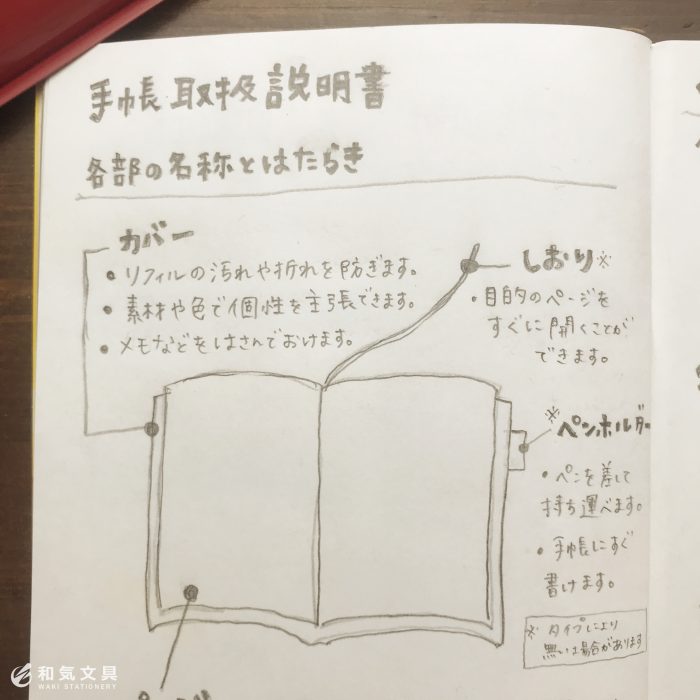 手帳取扱説明書
各部の名称とはたらき
カバー
• リフィルの汚れや折れを防ぎます。
• 素材や色で個性を主張できます。
• メモなどをはさんでおけます。
しおり※
• 目的のページを
すぐに開くことが
できます。
※ペンホルダー
• ペンを差して
持ち運べます。
• 手帳にすぐ
書けます。
※ タイプにより
無い場合があります
和気文具
WAKI STATIONERY